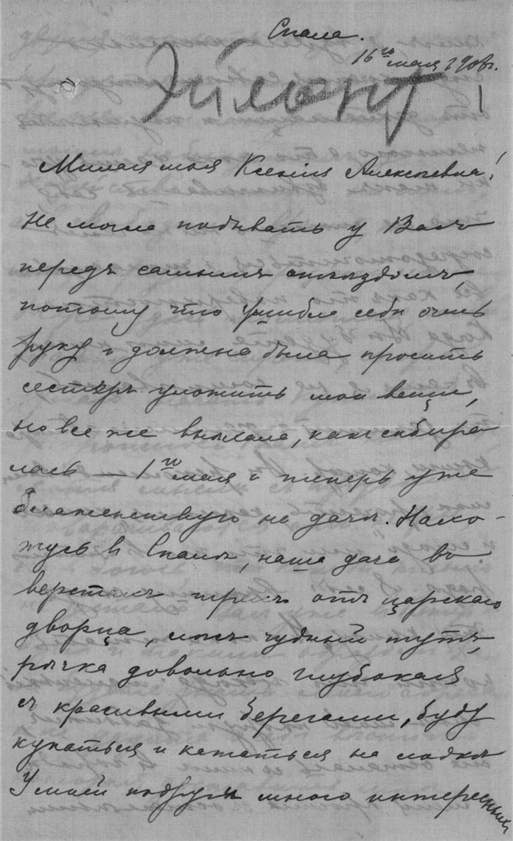 Спала.
16го мая 1908г.
Эймонт
Милая моя Ксенія Алексѣевна!
Не могла побывать у Васъ
передъ самымъ отъѣздомъ,
потому что ушибла себѣ очень
руку и должна была просить
сестеръ уложить мои вещи,
но все же выѣхала, какъ собира
лась — 1го мая и теперь уже
блаженствую на дачѣ. Нахо-
жусь въ Спалѣ, наша дача въ
верстахъ трехъ отъ царскаго
дворца, лѣсъ чудный тутъ,
рѣчка довольно глубокая
съ красивыми берегами, буду
купаться и кататься на лодкѣ
У моей подруги много интересныхъ